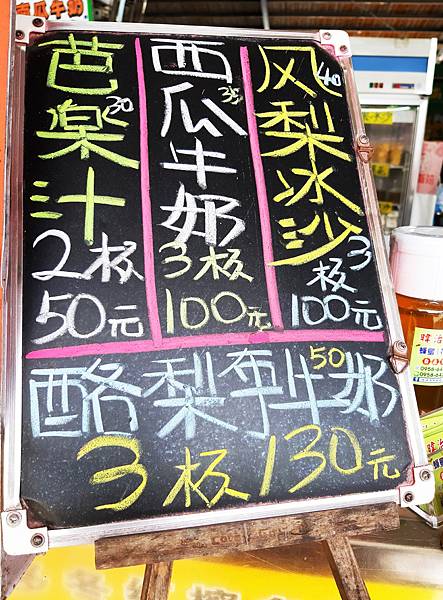 西瓜牛奶
芭樂汁
30
2板
50元
西瓜牛奶
35
3板
100元
凤梨冰沙
40
3板
100元
酪梨牛奶
50
3板130元